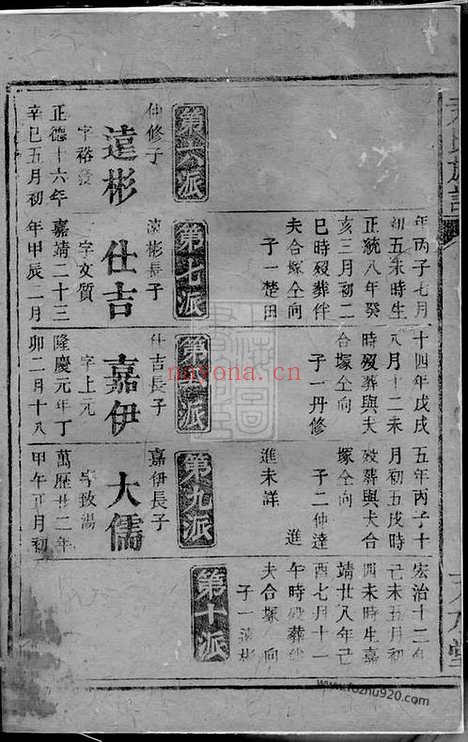 年丙子七月
初五未時生
正統八年癸
亥三月初二
巳時歿葬伴
夫合塚仝向
子一楚田
十四年戊戌
八月十二未
時歿葬與夫
合塚仝向
子一丹修
五年丙子十
月初五戌時
歿葬與夫合
塚仝向
子二仲達
進
進未詳
宏治十二年
己未五月初
四未時生嘉
靖廿八年己
酉七月十一
午時歿葬伴
夫合塚向
子一遠彬
第六派
第七派
第八派
第九派
第十派
仲修子
遠彬
字裕發
正德十六年
辛巳五月初
遠彬長子
仕吉
字文質
嘉靖二十三
年甲辰一月
仕吉長子
嘉伊
字上元
隆慶元年丁
卯二月十八
嘉伊長子
大儒
字致湯
萬歷廿二年
甲午正月初
nayona.cn
www.fozhu920.com